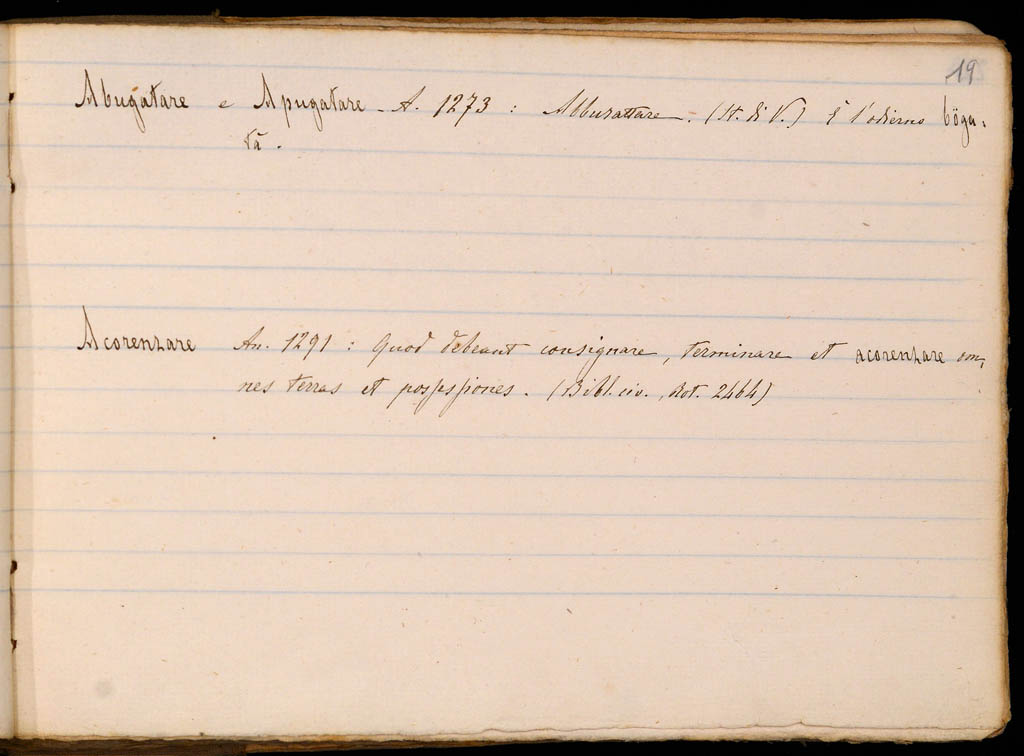 19
Abugatare e Apugatare - A. 1273 : Abburattare. (St. di V.) È l'odierno böga-
tà.
Acorenzare An. 1291 : Quod debeant consignare, terminare et acorenzare om-
nes terras et possessiones. (Bibl. civ., Rot. 2464)